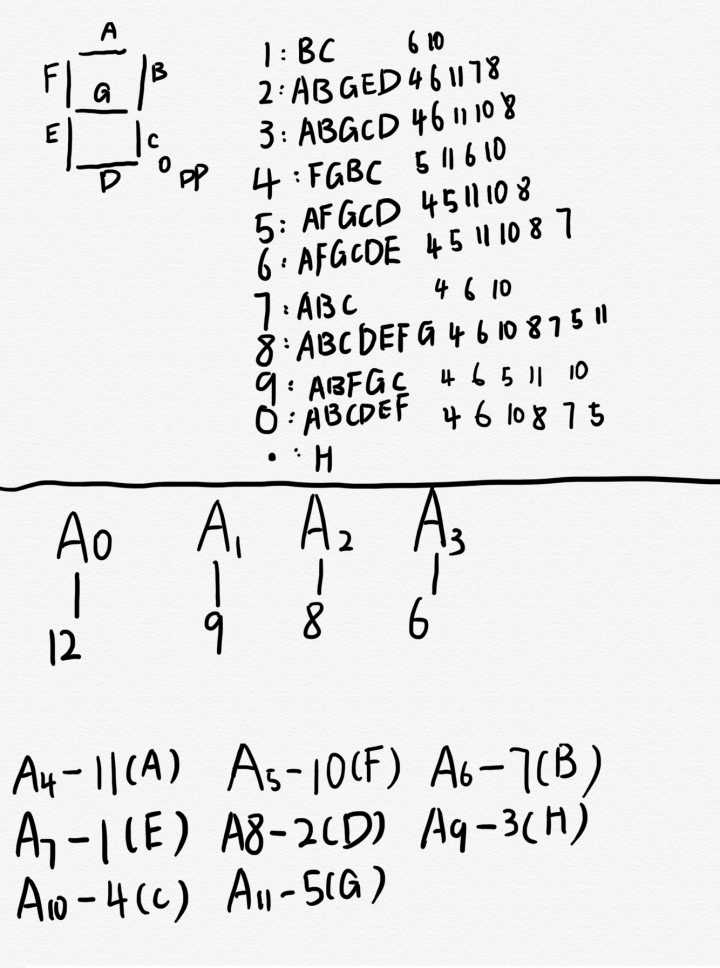 A
F B
G
E C
D DP
1: BC 6 10
2: ABGED 4 6 11 7 8
3: ABGCD 4 6 11 10 8
4: FGBC 5 11 6 10
5: AFGCD 4 5 11 10 8
6: AFGCDE 4 5 11 10 8 7
7: ABC 4 6 10
8: ABCDEFG 4 6 10 8 7 5 11
9: ABFGC 4 6 5 11 10
0: ABCDEF 4 6 10 8 7 5
• : H
A0 A1 A2 A3
12 9 8 6
A4-11(A) A5-10(F) A6-7(B)
A7-1(E) A8-2(D) A9-3(H)
A10-4(C) A11-5(G)